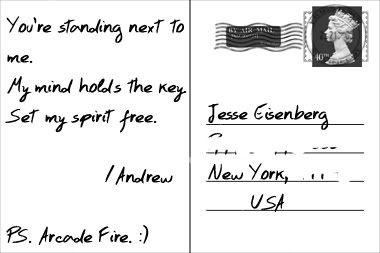 You're standing next to
me.
My mind holds the key
Set my spirit free.
/Andrew
PS. Arcade Fire. :)
BY AIR MAIL
Jesse Eisenberg
New York,
USA